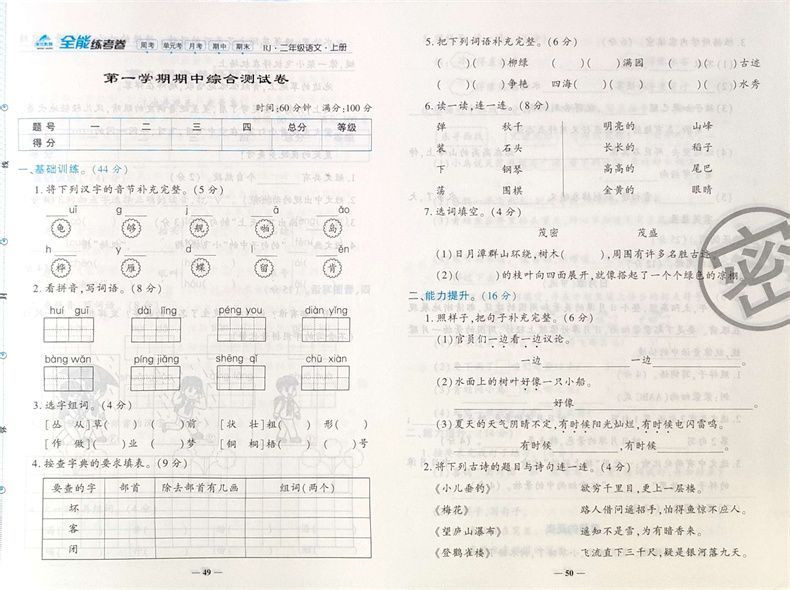 全能练考卷 周考 单元考 月考 期中 期末 RJ·二年级语文·上册
第一学期期中综合测试卷
时间:60分钟 满分:100分
题号 一 二 三 四 总分 等级
得分
一、基础训练。(44分)
1.将下列汉字的音节补充完整。(5分)
uī g j ā ǎo
龟 够 舰 啪 岛
h d i ěn
桦 雁 蝶 留 肯
2.看拼音,写词语。(8分)
huí guī dài lǐng péng you diàn yǐng
bàng wǎn píng jiǎng shēng qì chū xiàn
3.选字组词。(4分)
[丛 从]草( ) ( )前 [状 壮]粗( ) 形( )
[作 做]( )业 ( )梦 [铜 桐]梧( ) ( )号
4.按查字典的要求填表。(9分)
要查的字 部首 除去部首有几画 组词(两个)
坏
客
闭
— 49 —
5.把下列词语补充完整。(6分)
( )( )柳绿 ( )( )满园 ( )( )古迹
( )( )争艳 四海( )( ) ( )( )水秀
6.读一读,连一连。(8分)
弹 秋千 明亮的 山峰
装 石头 长长的 稻子
下 钢琴 高高的 尾巴
荡 围棋 金黄的 眼睛
7.选词填空。(4分)
茂密 茂盛
(1)日月潭群山环绕,树木( ),周围有许多名胜古迹。
(2)( )的枝叶向四面展开,就像搭起了一个个绿色的凉棚
密
二、能力提升。(16分)
1.照样子,把句子补充完整。(6分)
(1)官员们一边看一边议论。
一边 一边 。
(2)水面上的树叶好像一只小船。
好像 。
(3)夏天的天气阴晴不定,有时候阳光灿烂,有时候电闪雷鸣。
有时候 ,有时候 。
2.将下列古诗的题目与诗句连一连。(4分)
《小儿垂钓》 欲穷千里目,更上一层楼。
《梅花》 路人借问遥招手,怕得鱼惊不应人。
《望庐山瀑布》 遥知不是雪,为有暗香来。
《登鹳雀楼》 飞流直下三千尺,疑是银河落九天。
— 50 —